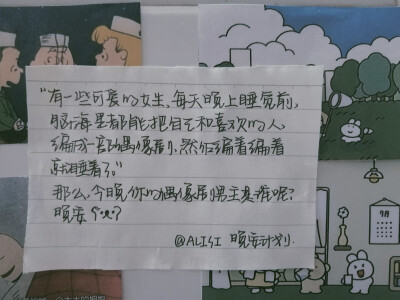 “有一些可爱的女生,每天晚上睡觉前,
脑海里都能把自己和喜欢的人
编成一部偶像剧,然后编着编着
就睡着了。”
那么,今晚你的偶像剧男主是谁呢?
晚安
@ALICI 晚安计划.
9月